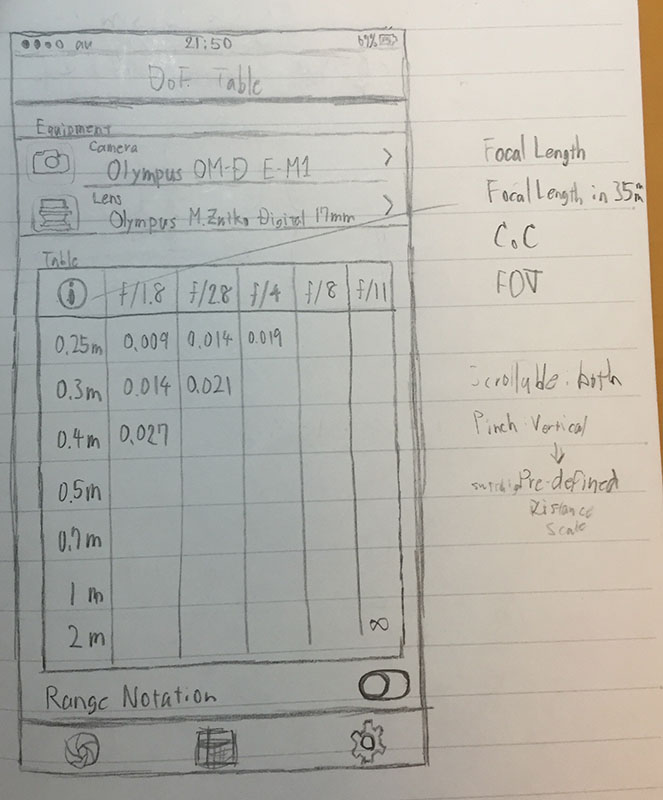 au 21:50 69%
DoF Table
Equipment
Camera
Olympus OM-D E-M1
Lens
Olympus M.Zuiko Digital 17mm
Table
i f/1.8 f/2.8 f/4 f/8 f/11
0.25m 0.009 0.014 0.019
0.3m 0.014 0.021
0.4m 0.027
0.5m
0.7m
1m
2m ∞
Range Notation
Focal Length
Focal Length in 35mm
CoC
FOV
Scrollable: both
Pinch: Vertical
↓
Pre-defined
Distance
Scale